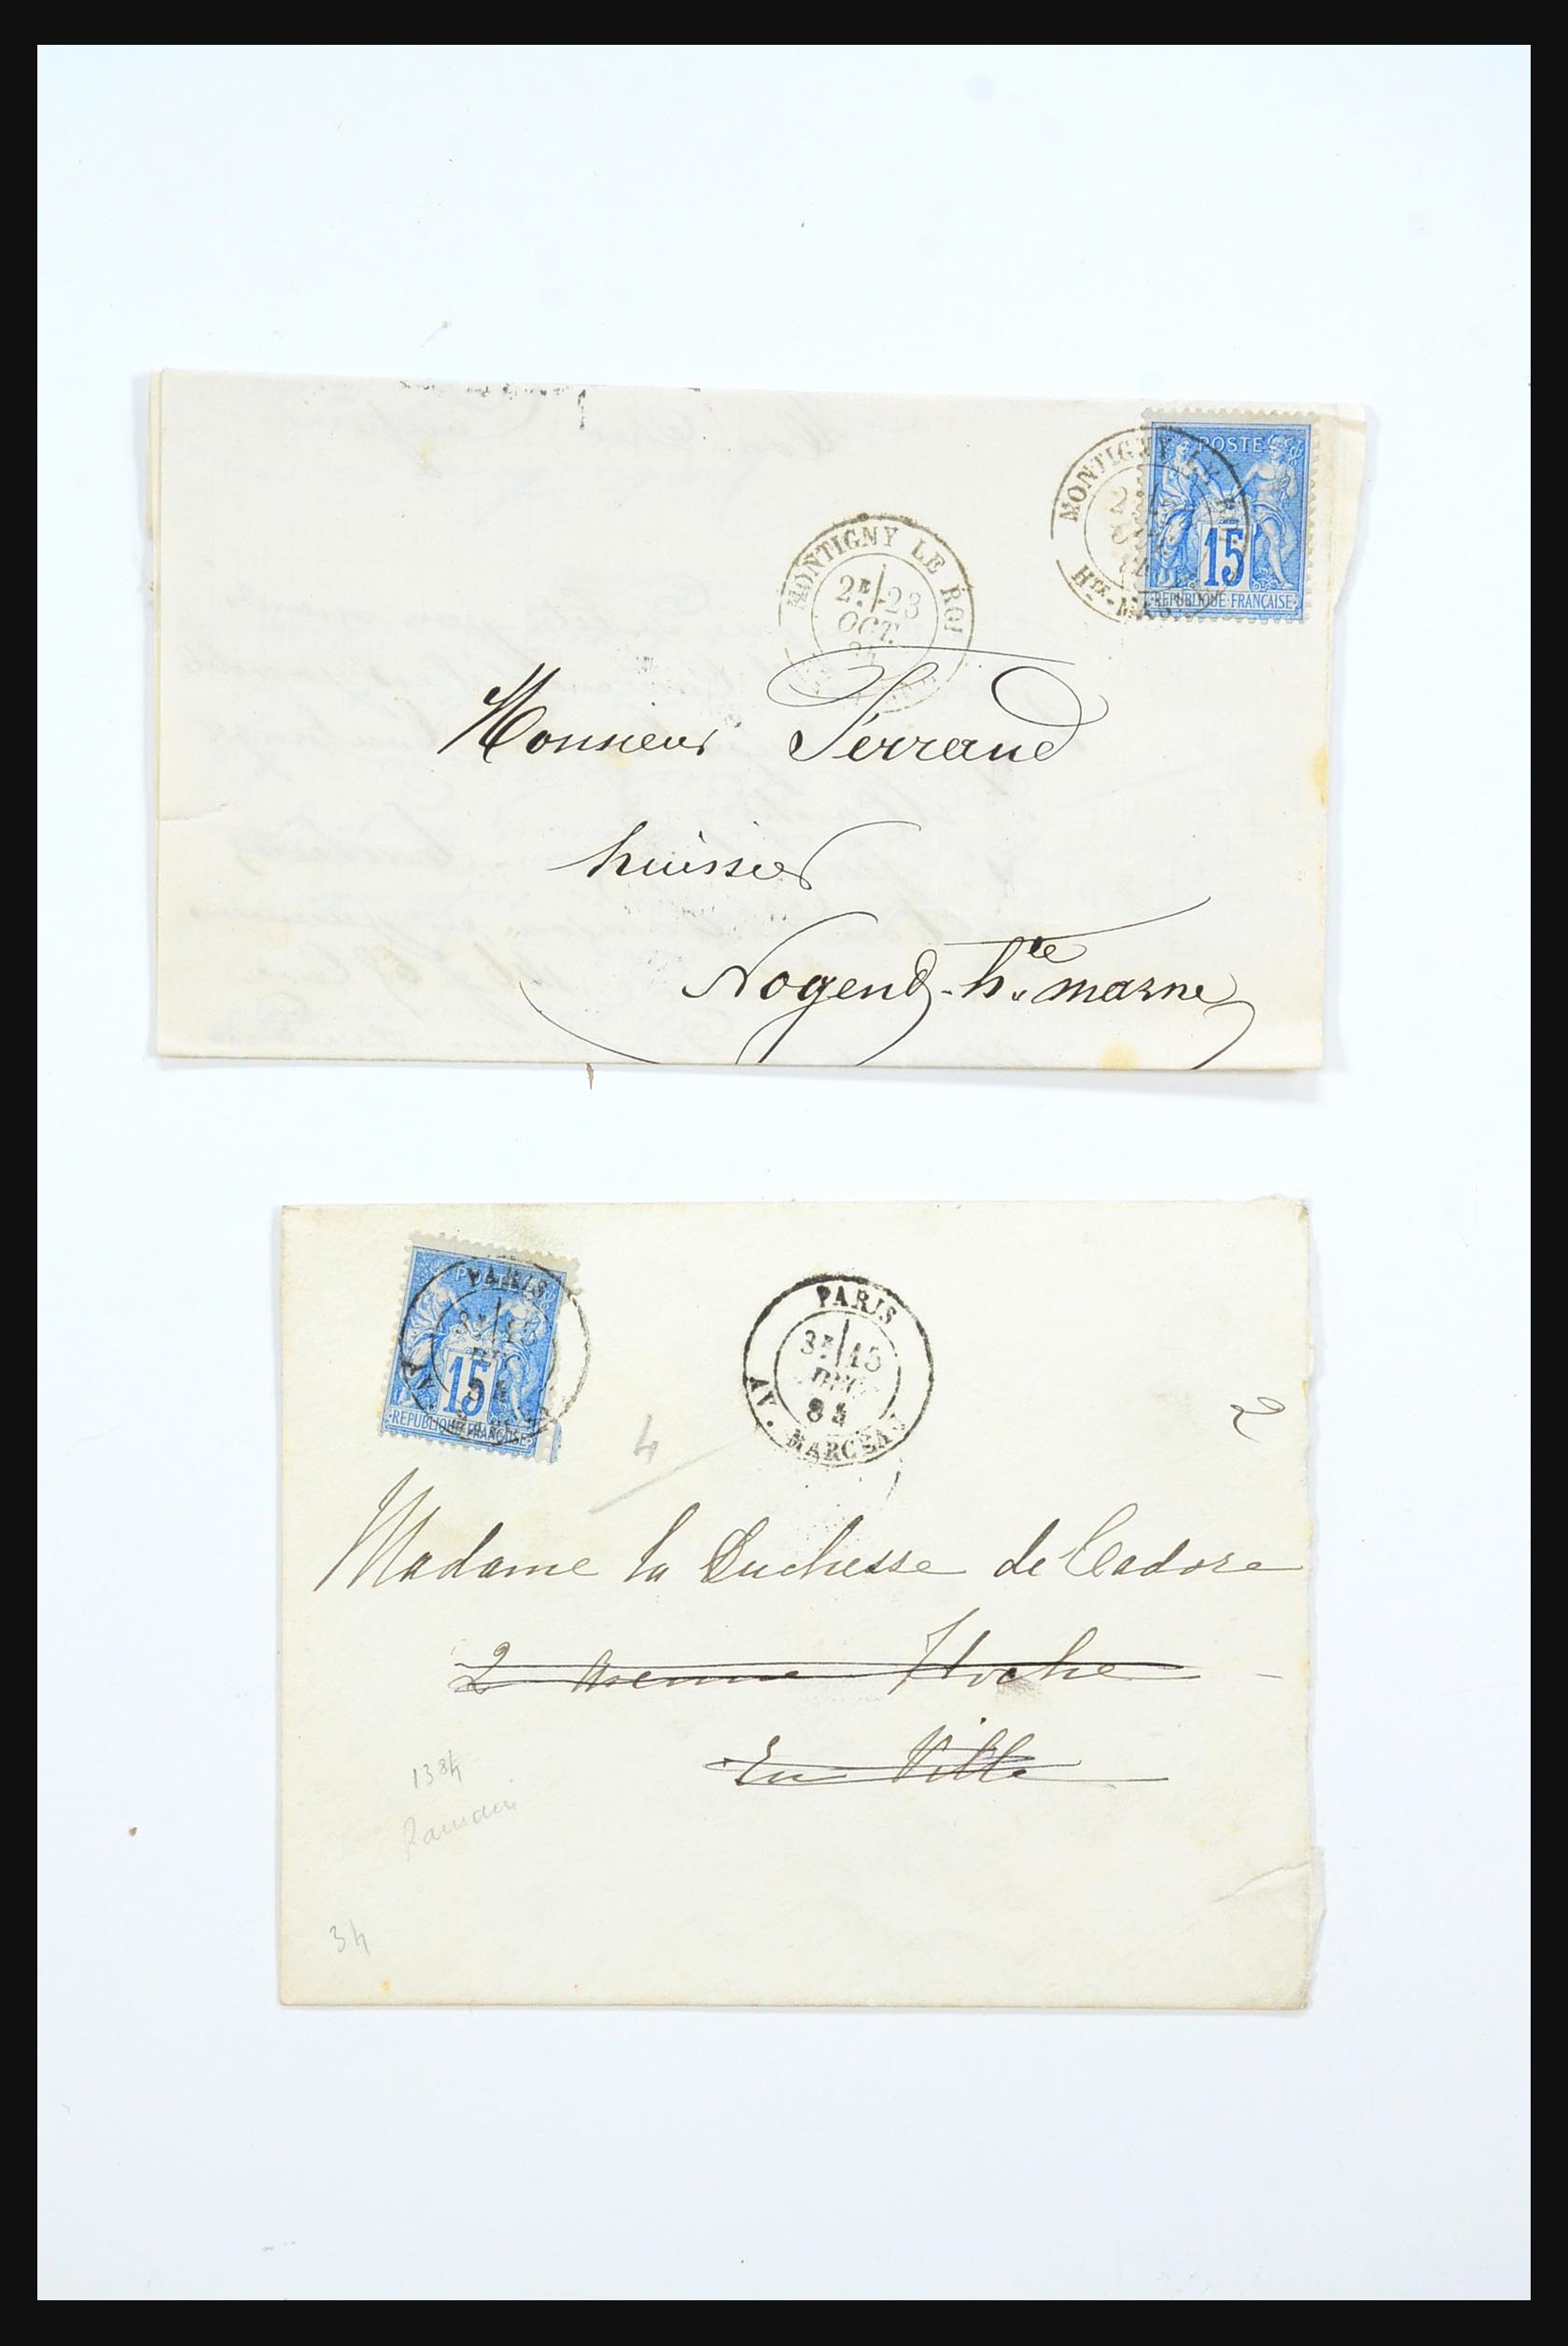 POSTE
15
REPUBLIQUE FRANÇAISE
MONTIGNY LE
HTE-
MONTIGNY LE ROI
2E 23
OCT.
Monsieur Ferrand
huissier
Nogend. hte marne
PARIS
15
REPUBLIQUE FRANÇAISE
PARIS
3E 15
DEC
AV. MARCEAU
4
2
Madame la Duchesse de Cadore
2 Avenue Hoche
En Ville
34